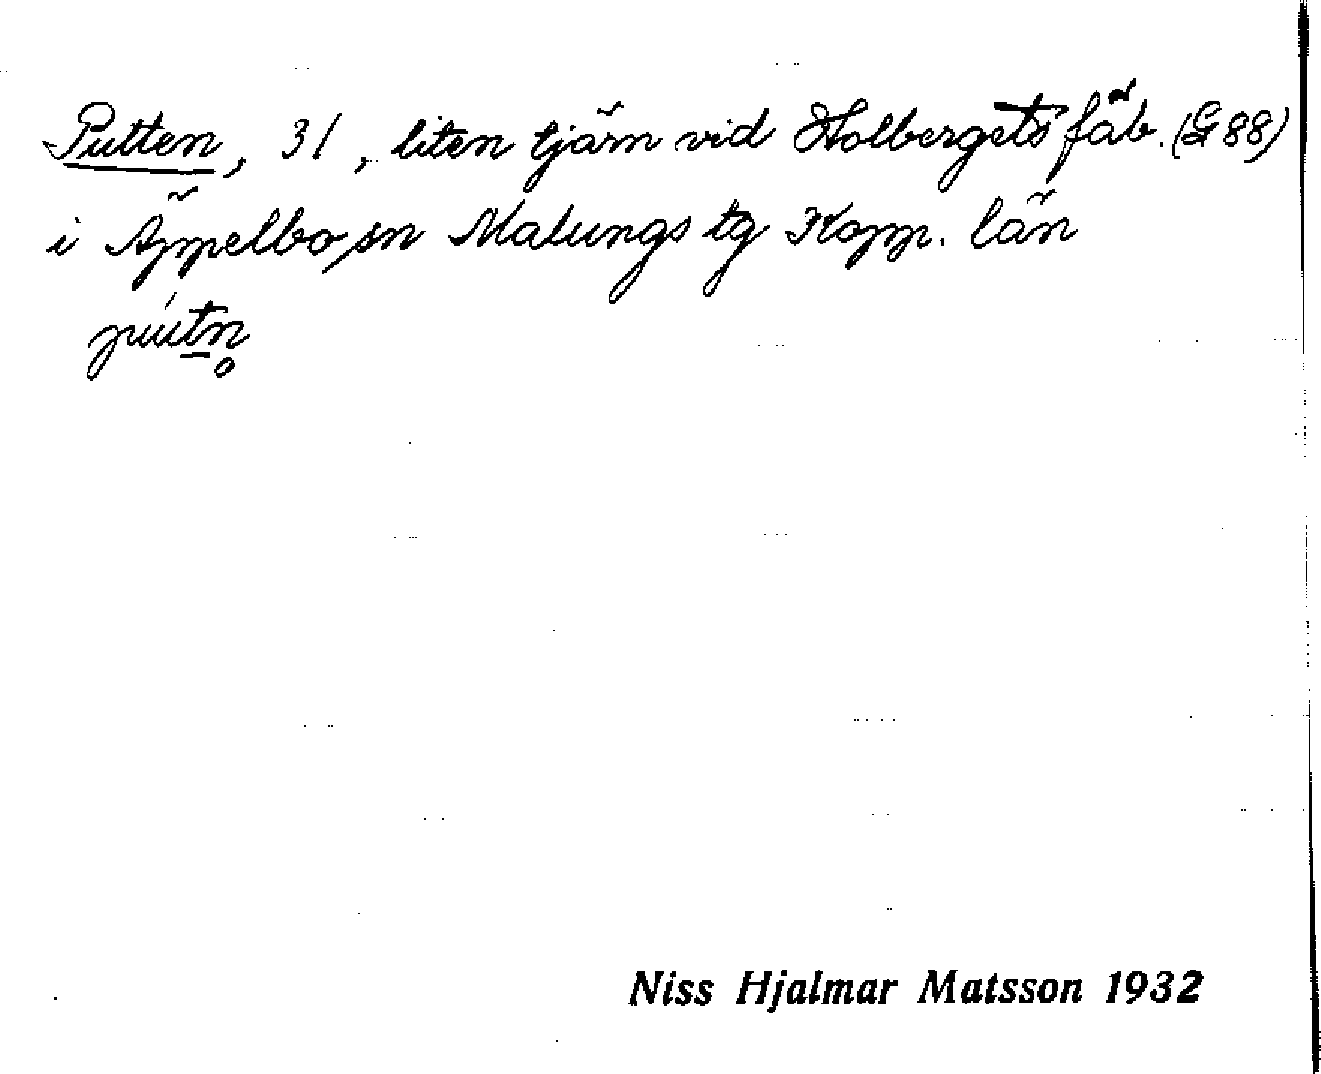 Putten, 31, liten tjärn vid Holbergets fäb. (G 88)
i Äppelbo sn Malungs tg Kopp. län
Niss Hjalmar Matsson 1932